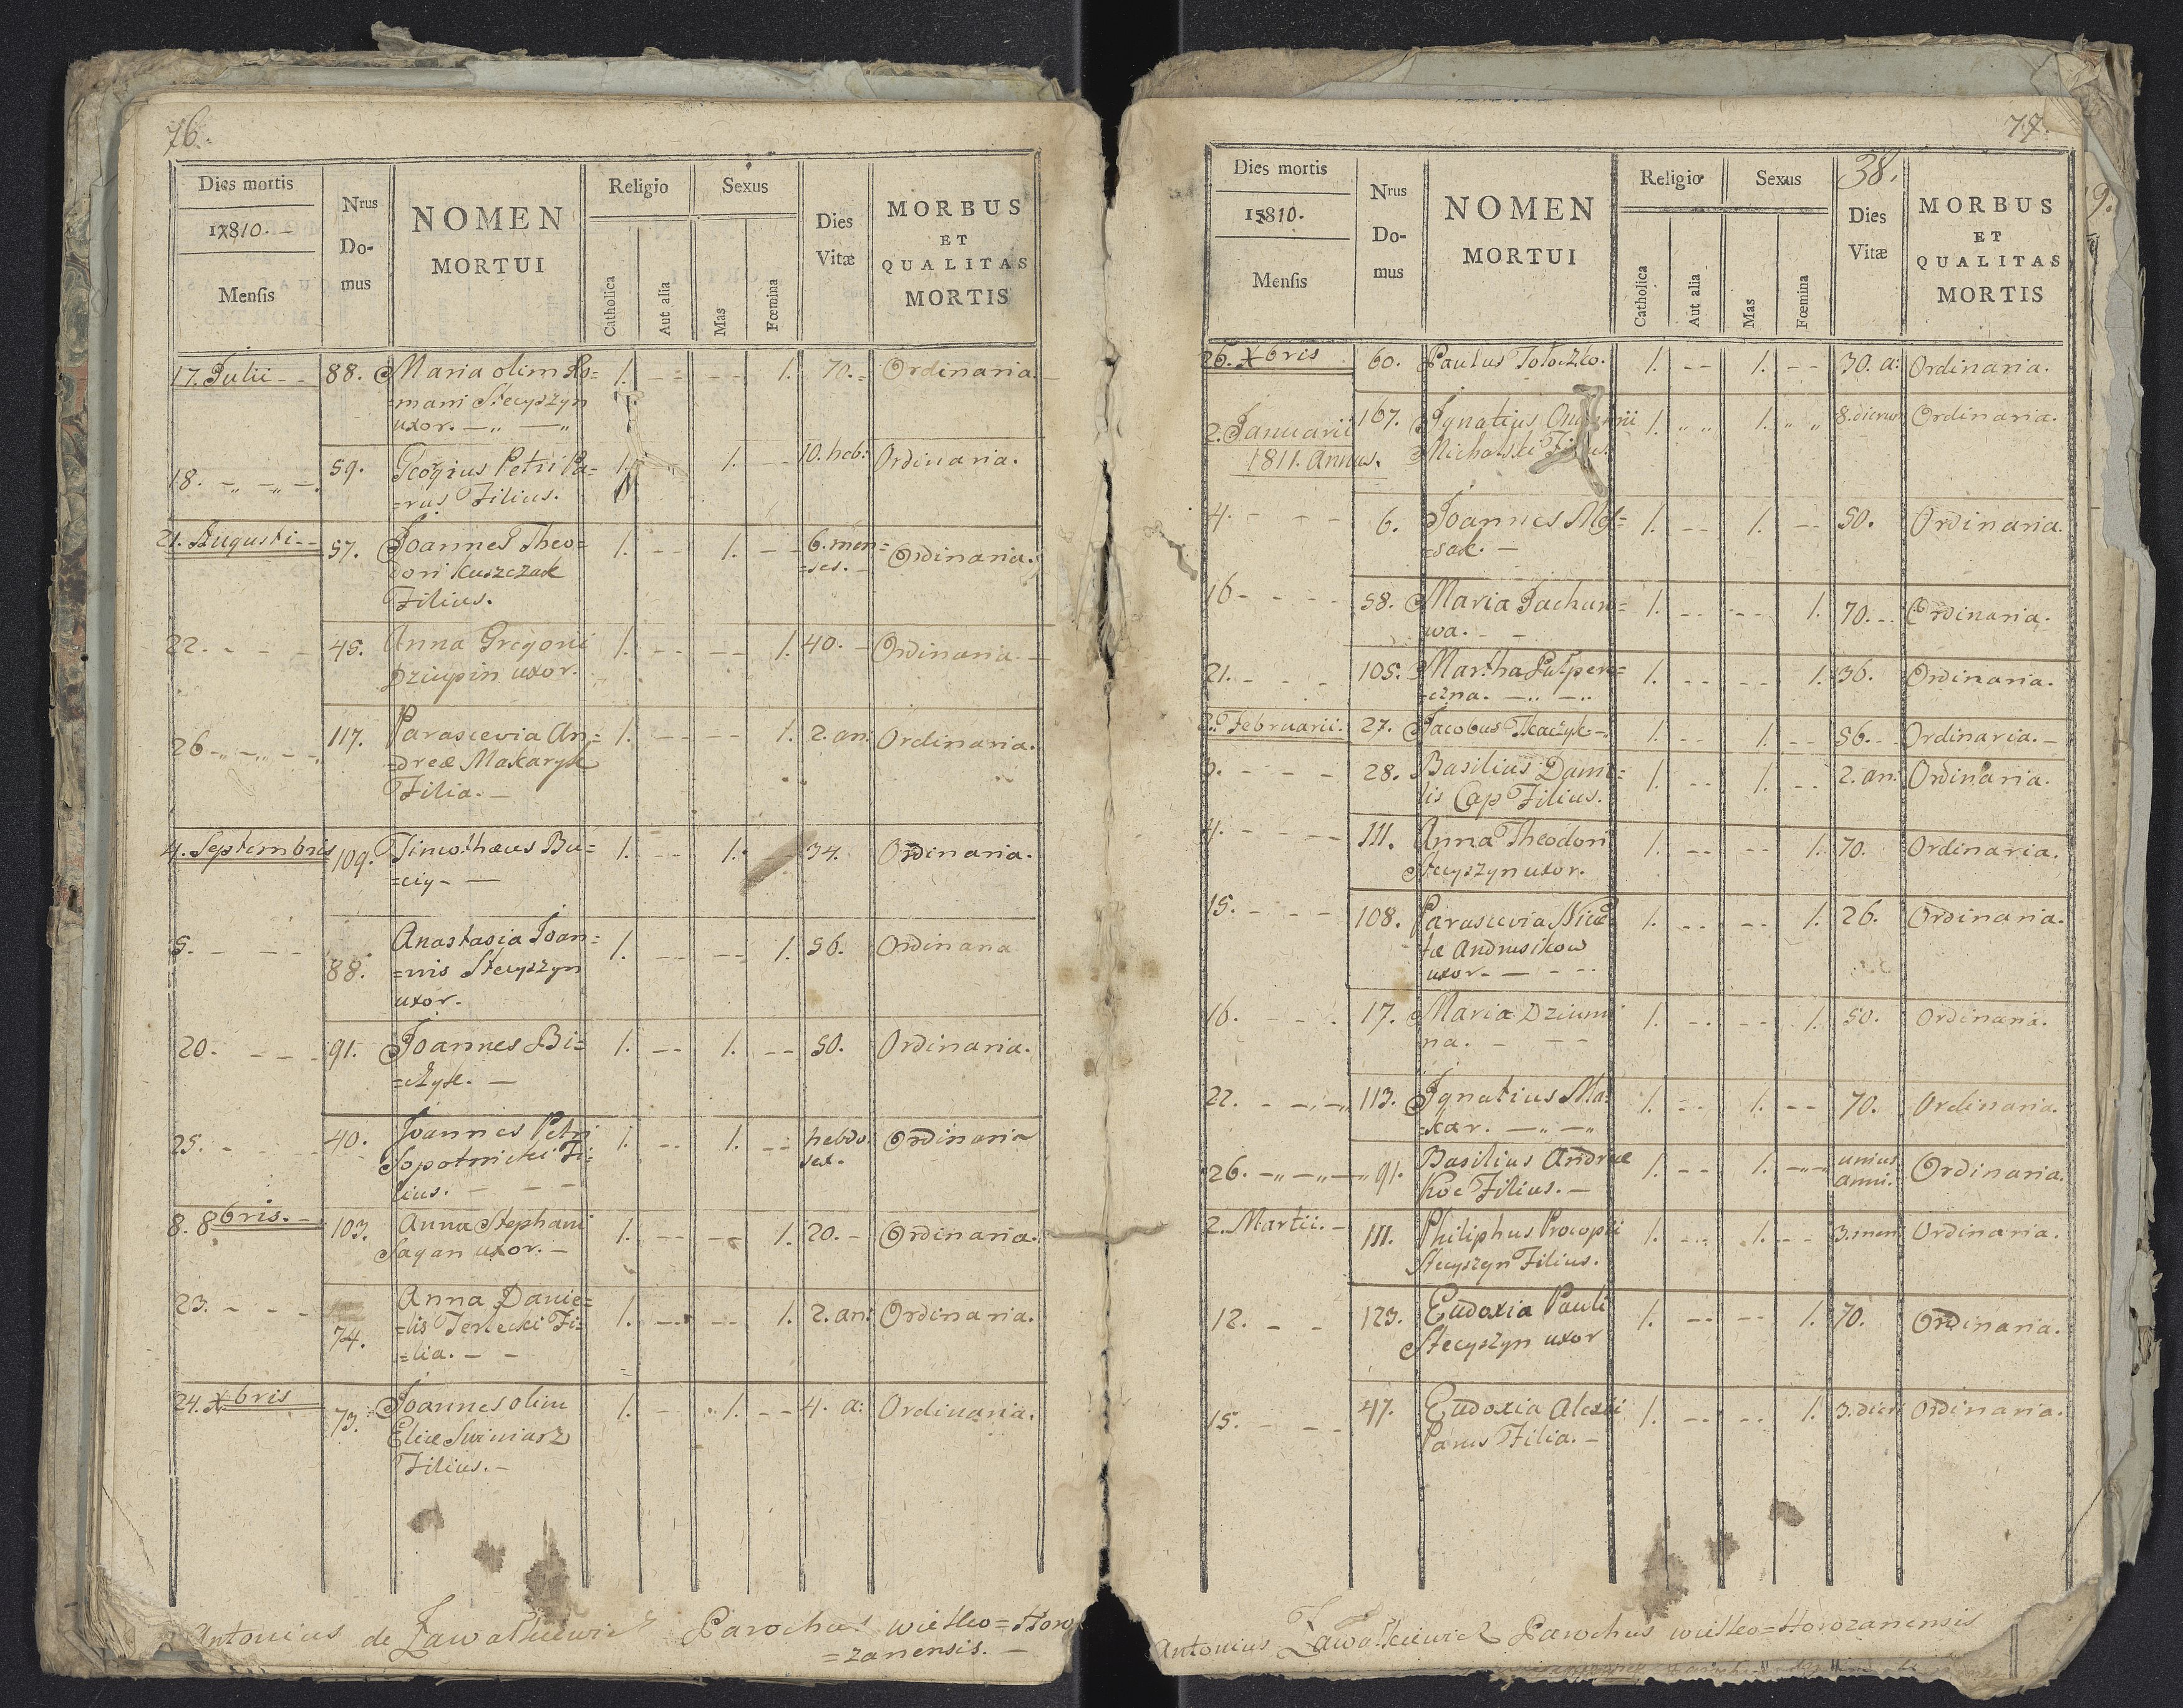 76.
Dies mortis
17810. -
Mensis
Nrus
Do-
mus
NOMEN
MORTUI
Religio
Catholica
Aut alia
Sexus
Mas
Fœmina
Dies
Vitæ
MORBUS
ET
QUALITAS
MORTIS
17. Julii - - 88. Maria olim Ro= 1. - - - - 1. 70. - Ordinaria.
=mani Stecyszyn
uxor. - „ - „
18. - „ - „ - 59. Georgius Petri Pa= 1. 1. - - 10. heb: Ordinaria.
=rus Filius.
21. Augusti - - 57. Joannes Theo= 1. - - 1. - - 6. men= Ordinaria.
dori Kuszczak =ses. -
Filius.
22. - - - 45. Anna Gregorii 1. - - - - 1. 40. - Ordinaria. -
Dziupin uxor.
26 - „ - „ - „ 117. Parascevia An= 1. - - - - 1. 2. an: Ordinaria.
=dreæ Makaryk
Filia. -
4. Septembris 109. Timothæus Bu= 1. - - 1. - - 34. Ordinaria.
=ciy - -
5. - - - 88. Anastasia Joan= 1. - - - - 1. 56. Ordinaria
=nis Stecyszyn
uxor.
20. - - - 91. Joannes Bi= 1. - - 1. - - 50. Ordinaria.
=
25. - - - 40. Joannes Petri 1. - - 1. - - hebdo: Ordinaria
Sopotnicki Fi= sex.
lius. - - -
8. 8bris. - 103. Anna Stephani 1. - - - - 1. 20. - Ordinaria.
Sagan uxor. -
23. - - - 74. Anna Danie= 1. - - - - 1. 2. an: Ordinaria.
=lis Terlecki Fi=
=lia. - -
24. Xbris 73. Joannes olim 1. - - 1. - - 4. a: Ordinaria.
Eliæ Swiniarz
Filius. -
Antonius de Zawałkiewicz Parochus wielko=Horo
=zanensis. -
77.
38.
9.
Dies mortis
17810.
Mensis
Nrus
Do-
mus
NOMEN
MORTUI
Religio
Catholica
Aut alia
Sexus
Mas
Fœmina
Dies
Vitæ
MORBUS
ET
QUALITAS
MORTIS
26. Xbris 60. Paulus Toloczko. 1. - - 1. - - 30. a: Ordinaria.
2. Januarii 167. Ignatius 1. „ „ 1. „ „ 8. dierum Ordinaria.
1811. Annus. Michalski Filius.
4. - - - 6. Joannes Mos= 1. - - 1. - - 50. Ordinaria.
=sak. -
16 - - - - 58. Maria Jachun= 1. - - - - 1. 70. - - Ordinaria.
wa. - -
21. - - - 105. Martha 1. - - - - 1. 36. Ordinaria.
=czna. - „ - „
2. Februarii. 27. Jacobus Tkaczyk - 1. - - 1. - - 56. - - Ordinaria. -
3. - - - 28. Basilius Danie= 1. - - 1. - - 2. an: Ordinaria.
lis Cap Filius.
4. - - - - 111. Anna Theodori 1. - - - - 1. 70. Ordinaria.
Stecyszyn uxor.
15. - - - 108. Parascevia Nice= 1. - - - - 1. 26. Ordinaria.
tæ Andrusikow
uxor - - - -
16. - - - 17. Maria Dziumi 1. - - - - 1. 50. Ordinaria.
na. - - -
22. - - „ - „ 113. Ignatius Ma= 1. - - 1. - - 70. Ordinaria.
=kar. - „ - „
26. - „ - „ - „ 91. Basilius Andreæ 1. - - 1. - „ - unius Ordinaria.
Koc Filius. - anni.
2. Martii. - 111. Philiphus Procopii 1. - - 1. - - 3. men Ordinaria.
Stecyszyn Filius.
12. - - 123. Eudoxia Pauli 1. - - - - 1. 70. Ordinaria.
Stecyszyn uxor
15. - - - 47. Eudoxia Alexii 1. - - - - 1. 3. dier Ordinaria.
Parus Filia. -
Antonius Zawałkiewicz Parochus wielko=Horozanensis